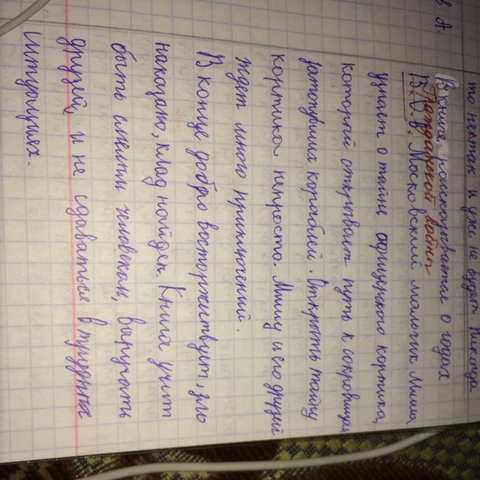 в А.
то неттак и уже не будет никогда
В книге рассказывается о годах
Гражданской войны
В.О.В. Московский мальчик Миша
узнает о тайне офицерского кортика,
который открывает путь к сокровищам
затонувших кораблей. Открыть тайну
кортика непросто. Мишу и его друзей
ждет много приключений.
В конце добро восторжествует, зло
наказано, клад найден. Книга учит
быть смелым человеком, выручать
друзей, и не сдаваться в трудных
ситуациях.